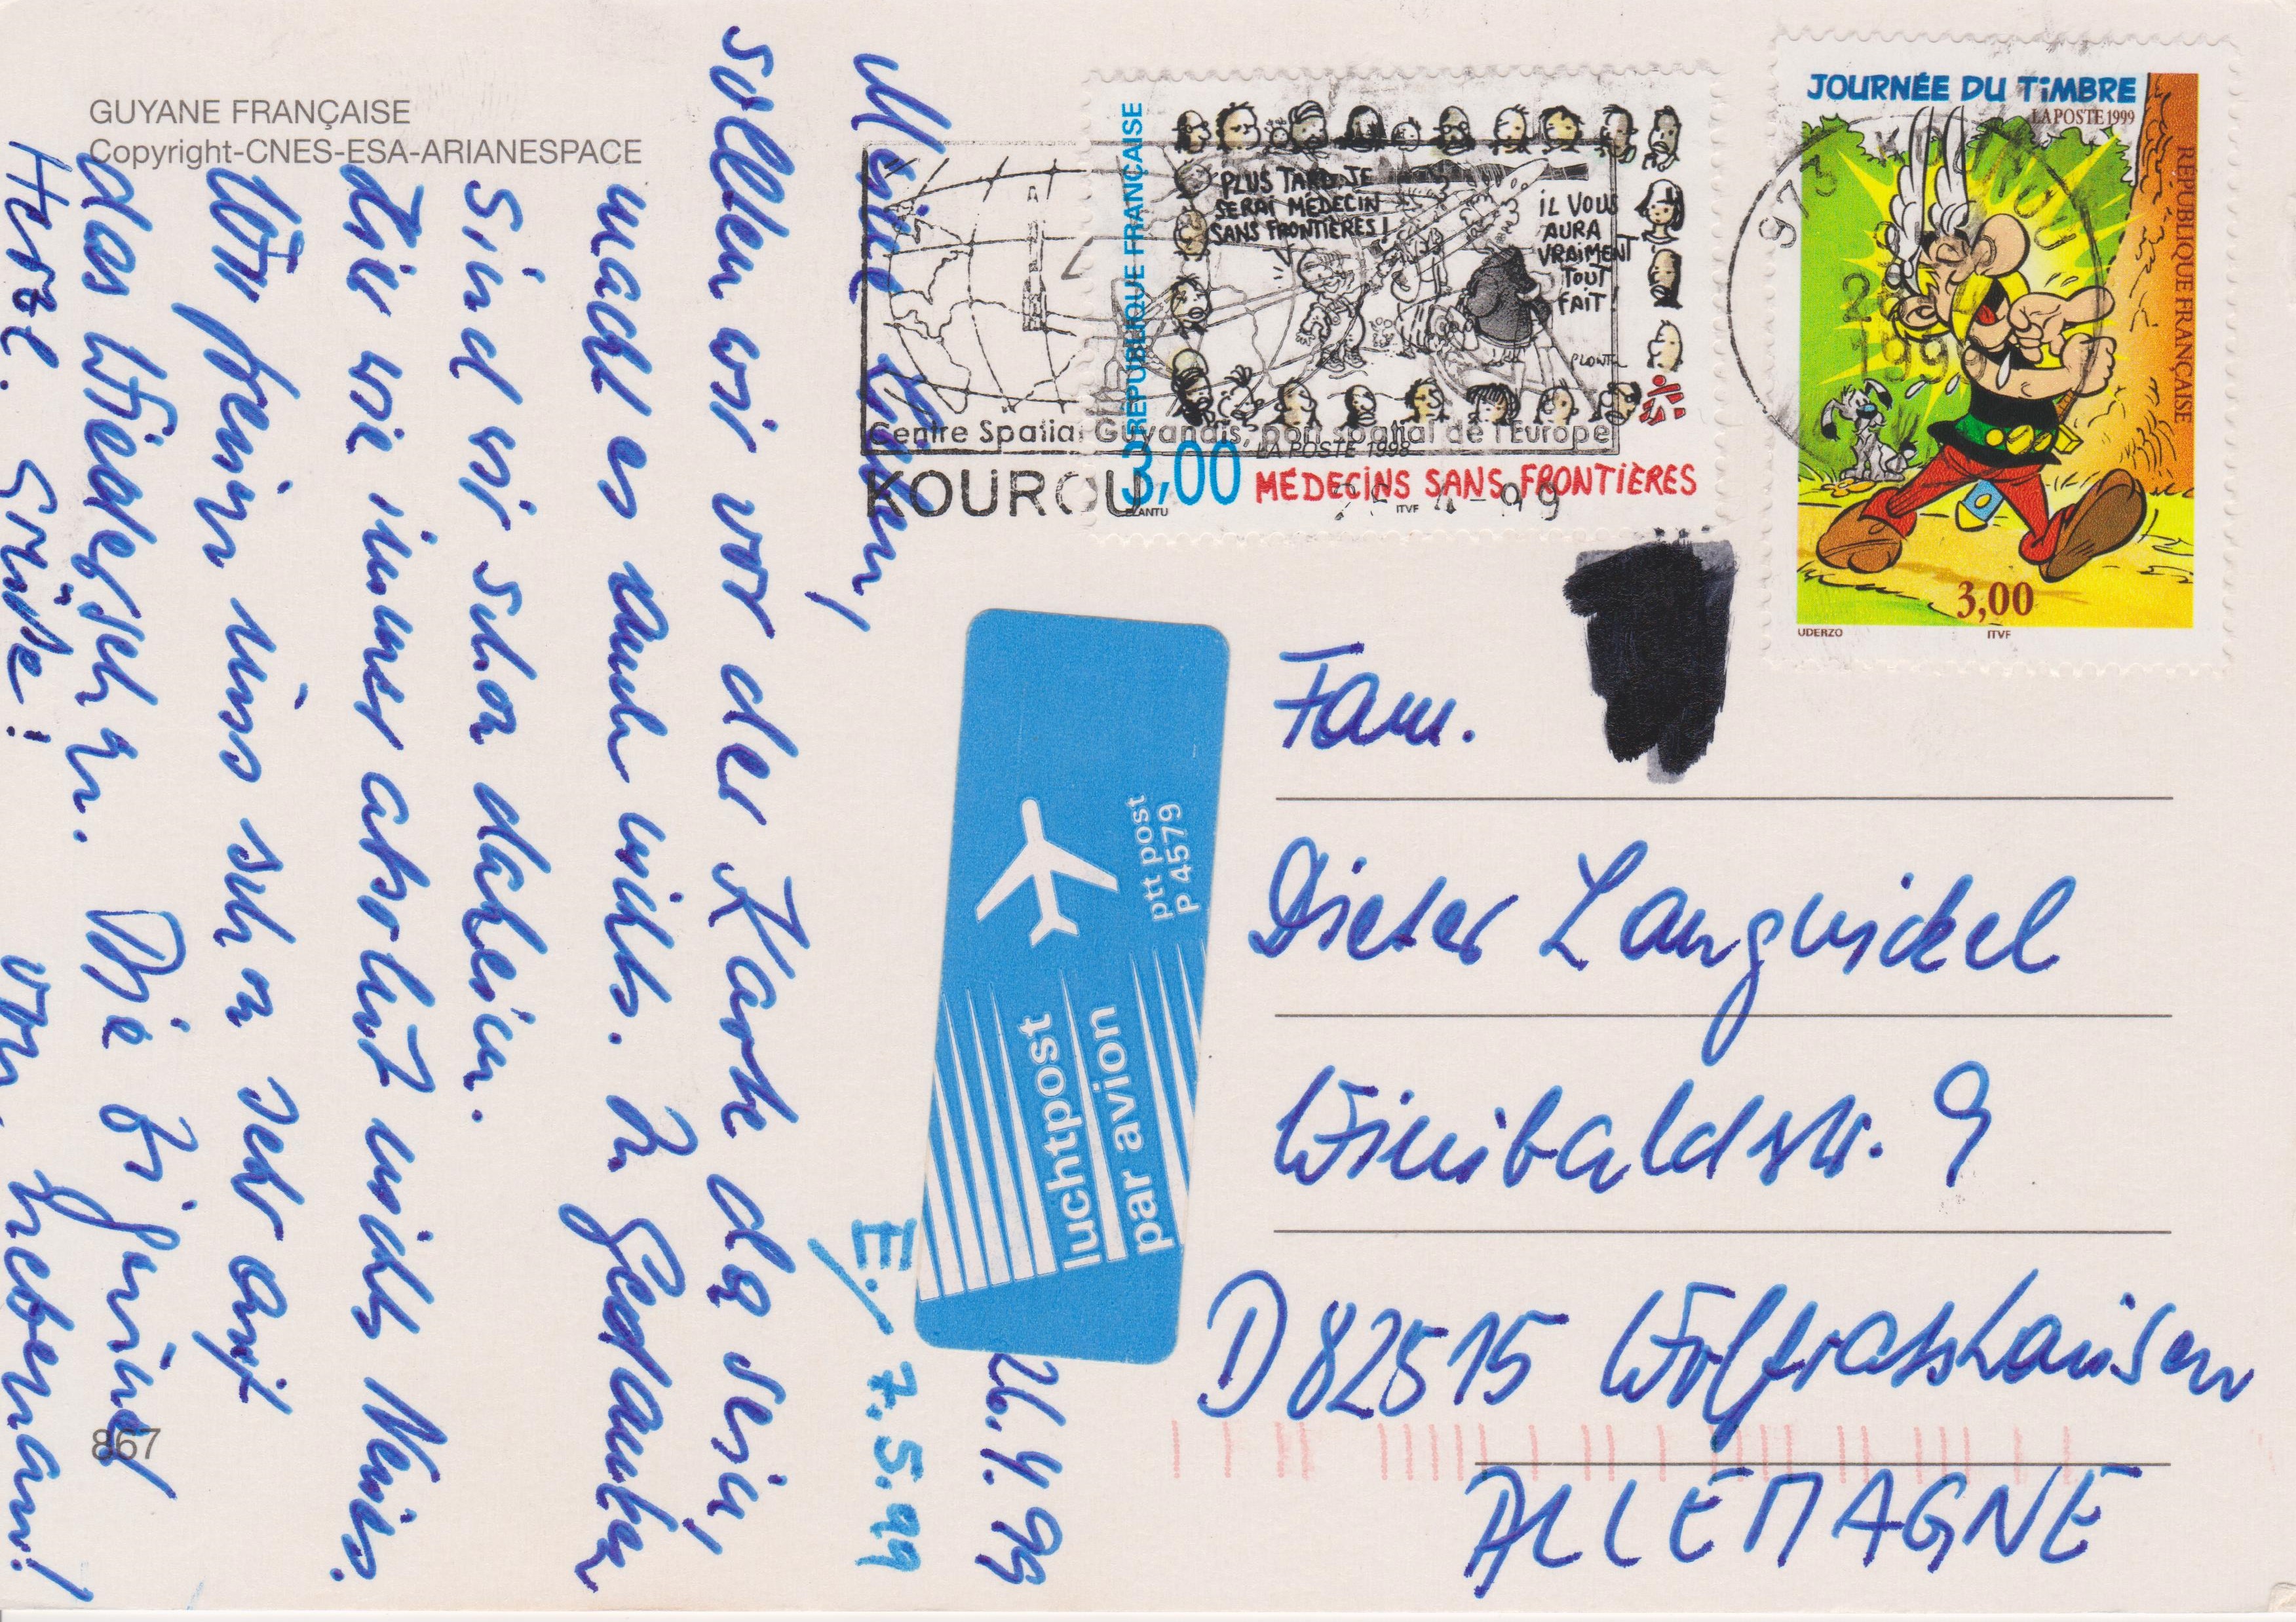 GUYANE FRANÇAISE
Copyright-CNES-ESA-ARIANESPACE
26.4.99
Meine Lieben,
sollen wir vor der Karte da sein,
macht es auch nichts. In Gedanken
sind wir schon daheim.
Wir freuen uns schon sehr auf
das Wiedersehen.
Herzl. Grüße!
E./ 7.5.99
867
REPUBLIQUE FRANÇAISE
PLUS TARD JE
SERAI MÉDECIN
SANS FRONTIÈRES !
IL VOUS
AURA
VRAIMENT
TOUT
FAIT !
PLANTU
LA POSTE 1998
3,00 MÉDECINS SANS FRONTIÈRES
PLANTU
ITVF
Centre Spatial Guyanais, port spatial de l'Europe
KOUROU
JOURNÉE DU TIMBRE
LA POSTE 1999
RÉPUBLIQUE FRANÇAISE
3,00
UDERZO
ITVF
973 KOUROU
luchtpost
par avion
ptt post
P 4579
Fam.
Dieter Languickel
Winibaldstr. 9
D 82515 Wolfratshausen
ALLEMAGNE